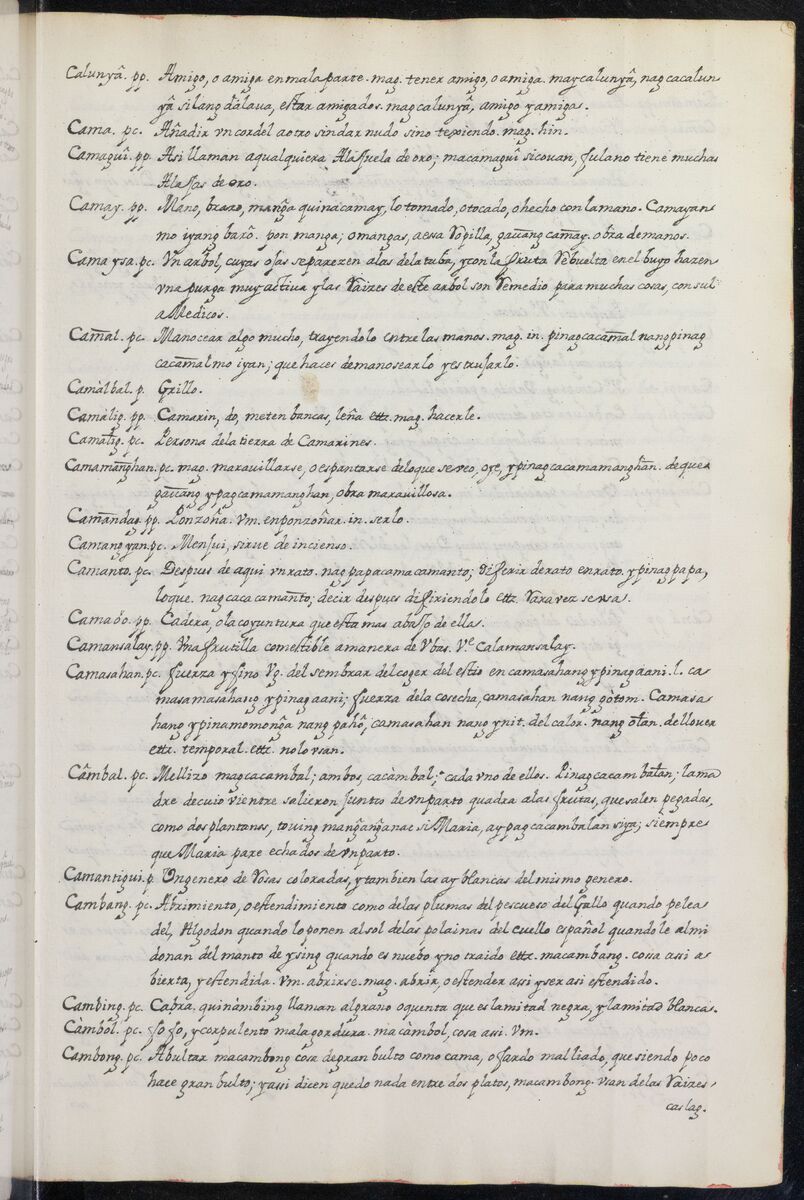 Calunyã. pp. Amigo, o amiga en mala parte. mag. tener amigo, o amiga. may calunyã, nag cacalun
yã silang dalaua, estar amigados. mag calunyã, amigo y amiga.
Cama. pc. Añadir vn cordel a otro sin dar nudo sino texiendo. mag. hin.
Camaguî. pp. Asi llaman a qualquiera Alajuela de oro; macamaguî si couan, fulano tiene muchas
Alajas de oro.
Camay. pp. Mano, brazo, manga quinacamay, lo tomado, o tocado, o hecho con la mano. Camayan
mo iyang barò. pon manga; o mangas, a esa ropilla, gauang camay. obra de manos.
Camaysa. pc. Vn arbol, cuyas ojas se parezen a las de la tuba, y con la fruta rebuelta en el buyo hazen
vna purga muy actiua y las raizes de este arbol son remedio para muchas cosas, consul
a Medicos.
Camal. pc. Manocear algo mucho, trayendolo entre las manos. mag. in. pinagcacamal nang pinag
cacamal mo iyan; que haces de manosearlo y estrujarlo.
Camàlbal. p. Grillo.
Camàlig. pp. Camarin, do, meten bancas, leña ettz. mag. hacerle.
Camalig. pc. Persona de la tierra de Camarines.
Camamanghan. pc. mag. maravillarse, o espantarse de lo que se veo, oye, y pinagcacamamanghan. de que
gauang ypagcamamanghan, obra maravillosa.
Camandag. pp. Ponzoña. vm. enponzoñar. in. serlo.
Camangyan. pc. Menjui, sirue de incienso.
Camanto. pc. Despues de aqui vn rato. nagpapacamacamanto; diferir de rato en rato. y pinagpapa,
loque. nagcacacamanto; decir despues difiriendolo ettz. rara vez se vsa.
Camaòo. pp. Cadera, o la coyuntura que esta mas abajo de ellas.
Camansalay. pp. Vna frutilla comestible a manera de Vbas. Ve. Calamansalay.
Camasahan. pc. fuerza y fino Vg. del sembrar del coger del estio en camasahang ypinagaani. l. ca
masamasahang ypinagaani; fuerza de la cosecha, camasahan nang gòtom. Camasa
hang ypinamomonga nang pahô, camasahan nang ynit. del calor. nang olan. del lluver
ettz. temporal. ettz. no lo vsan.
Câmbal. pc. Mellizo magcacambal; ambos, cacàmbal; cada vno de ellos. Pinagcacambalan; la ma
dre de cuio vientre salieron juntos de vn parto quadra a las frutas, que salen pegadas,
como dos plantanos, touing manganganac si Maria, ay pagcacambalan siya; siempre
que Maria pare echa dos de vn parto.
Camantigui. p. Un genero de rosas coloradas, y tambien las ay blancas del mismo genero.
Cambang. pc. Abrimiento, o estendimiento como de las plumas del pescueso del Gallo quando pelea
del, Algodon quando lo ponen al sol de las polainas del cuello español quando le almi
donan del manto de ysing quando es nuebo y no traido ettz. macambang. cosa asi a
bierta, y estendida. vm. abrirse. mag. abrir, o estender assi y ser asi estendido.
Cambing. pc. Cabra, quinàmbing llaman al grano o quenta que es la mitad negra, y la mitad blancas.
Càmbol. pc. fofo, y corpulento mala gordura. macàmbol, cosa asi. vm.
Cambong. pc. Abultar macambong cosa de gran bulto como cama, o fardo mal liado, que siendo poco
hace gran bulto; y assi dicen quedo nada entre dos platos, macambong. vsan de las raizes
caslag.